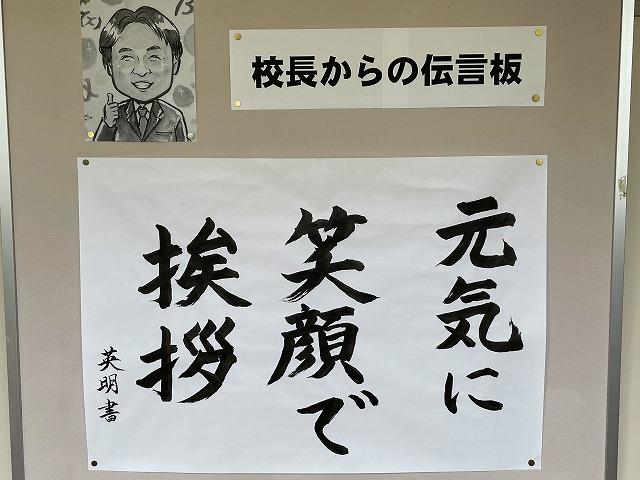 校長からの伝言板
元気に
笑顔で
挨拶
英明書